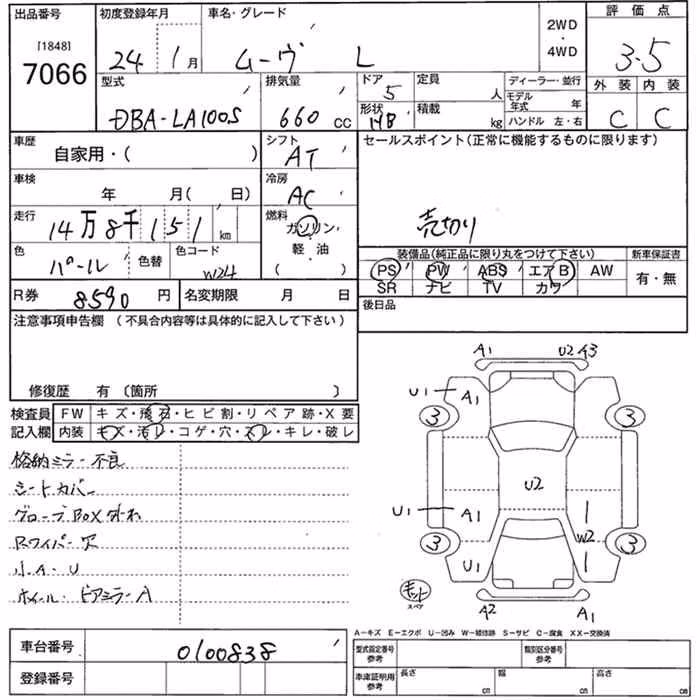 出品番号 初度登録年月 車名・グレード 2WD・4WD 評価点
[1848]
7066 24年 1月 ムーヴ L 3.5
型式 排気量 ドア 定員 ディーラー・並行 外装 内装
DBA-LA100S 660 CC 5 人 モデル年式 年 C C
形状 HB 積載 kg ハンドル 左・右
車歴 自家用・( ) シフト AT セールスポイント(正常に機能するものに限ります)
車検 年 月( 日) 冷房 AC
走行 14万8千151km 燃料 ガソリン・軽・油 ( ) 売切り
色 パール 色替 色コード W24
装備品(純正品に限り丸をつけて下さい) 新車保証書
PS PW ABS エアB AW 有・無
SR ナビ TV カワ
R券 8590円 名変期限 月 日 後日品
注意事項申告欄 (不具合内容等は具体的に記入して下さい)
修復歴 有 (箇所 )
検査員 FW キズ・飛石・ヒビ割・リペア跡・X要
記入欄 内装 キズ・汚レ・コゲ・穴・スレ・キレ・破レ
格納ミラー不良
シートカバー
グローブBOX外れ
Rワイパー欠
小A.U
ホイール・ドアミラーA
A1 U2 A3
U1 A1
3 3
U2
U1 A1 W2
3 3
U1
キット
スペア
A2 A1
A-キズ E-エクボ U-凹み W-補修跡 S-サビ C-腐食 XX-交換済
車台番号 0100838
登録番号
型式指定番号 参考 類別区分番号 参考
車庫証明用 参考 長さ cm 幅 cm 高さ cm